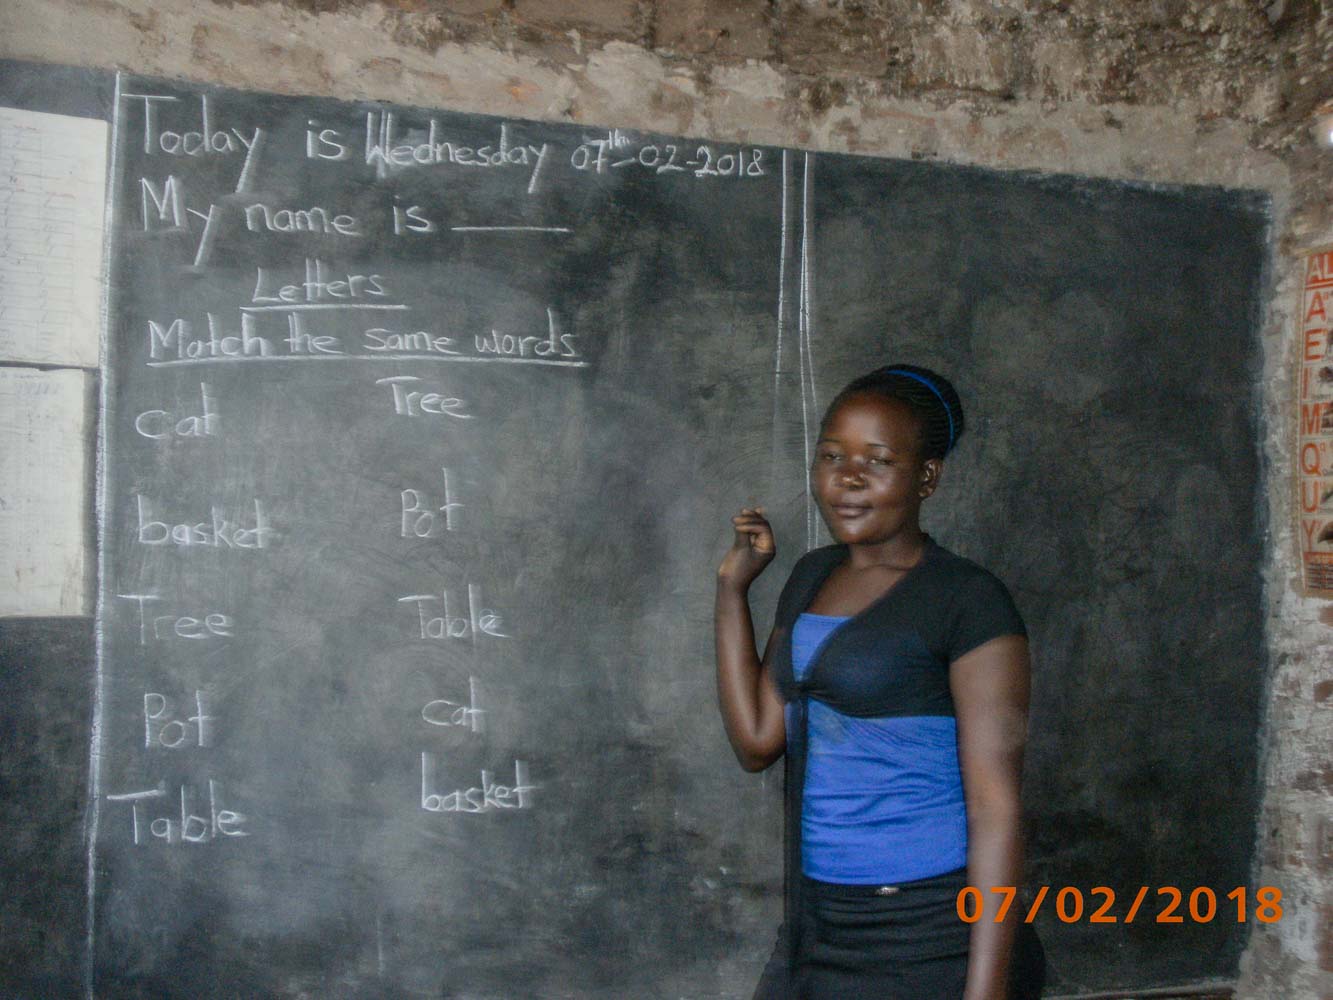 Today is Wednesday 07th-02-2018
My name is ______
Letters
Match the same words
cat Tree
basket Pot
Tree Table
Pot cat
Table basket
AL
A
E
I
M
Q
U
Y
07/02/2018